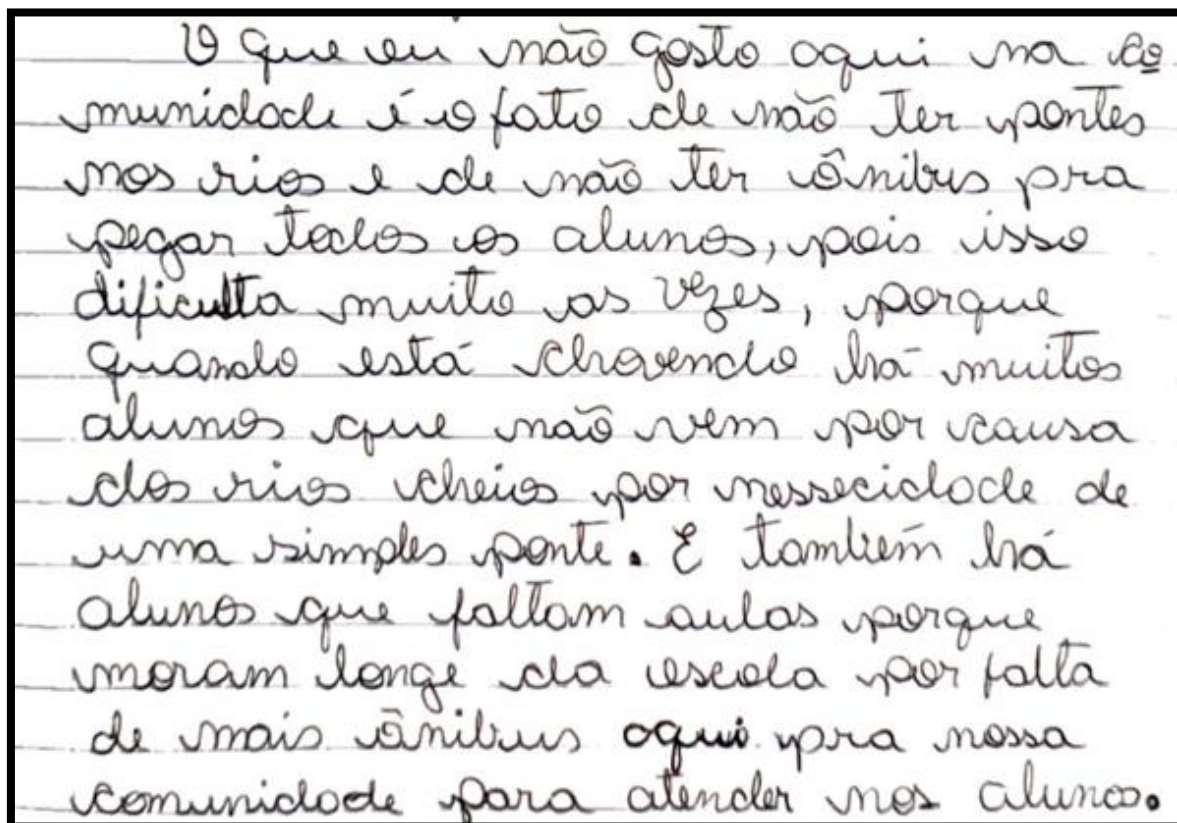 O que eu não gosto aqui na co
munidade é o fato de não ter pontes
nos rios e de não ter ônibus pra
pegar todos os alunos, pois isso
dificulta muito as vezes, porque
quando está chovendo há muitos
alunos que não vem por causa
dos rios cheios por nessecidade de
uma simples ponte. E também há
alunos que faltam aulas porque
moram longe da escola por falta
de mais ônibus aqui pra nossa
comunidade para atender nos alunos.